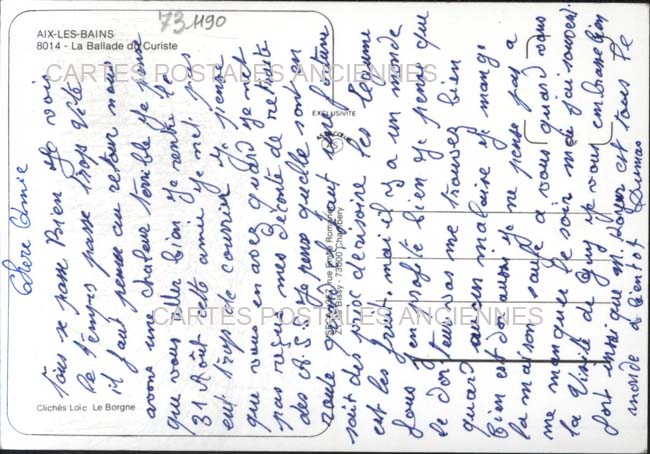 73 1190
AIX-LES-BAINS
8014 - La Ballade du Curiste
CARTES POSTALES ANCIENNES
EXCLUSIVITE
73000 Chambéry
CARTES POSTALES ANCIENNES
Clichés Loïc Le Borgne
Chère Amie
Tous se passe Bien Je vois
le temps passe trop vite
il faut pense au retour nous
avons une chaleur terrible Je pense
que vous aller bien Je rentre le
31 Août cette année Je n'ai pas
eut trop de courrier Je pense
que vous en avez quand Je n'ait
pas reçue mes décomte de retraite
des A.S.S. Je pense quelle sont en
route quand il faut une facture
sait des prix dérisoire les légume
est les fruit mai il y a un monde
fous J'en profite bien Je pense que
le docteur vas me trouvez bien
quard aucun malaise Je mange
bien est dor aussi Je ne pense pas a
la maison sauf a vous quand vous
me manquer le soir mai j'ai souvent
la visite de Guy Je vous embrasse bien
fort ainsi que M. Royer est tous le
monde a Bientot